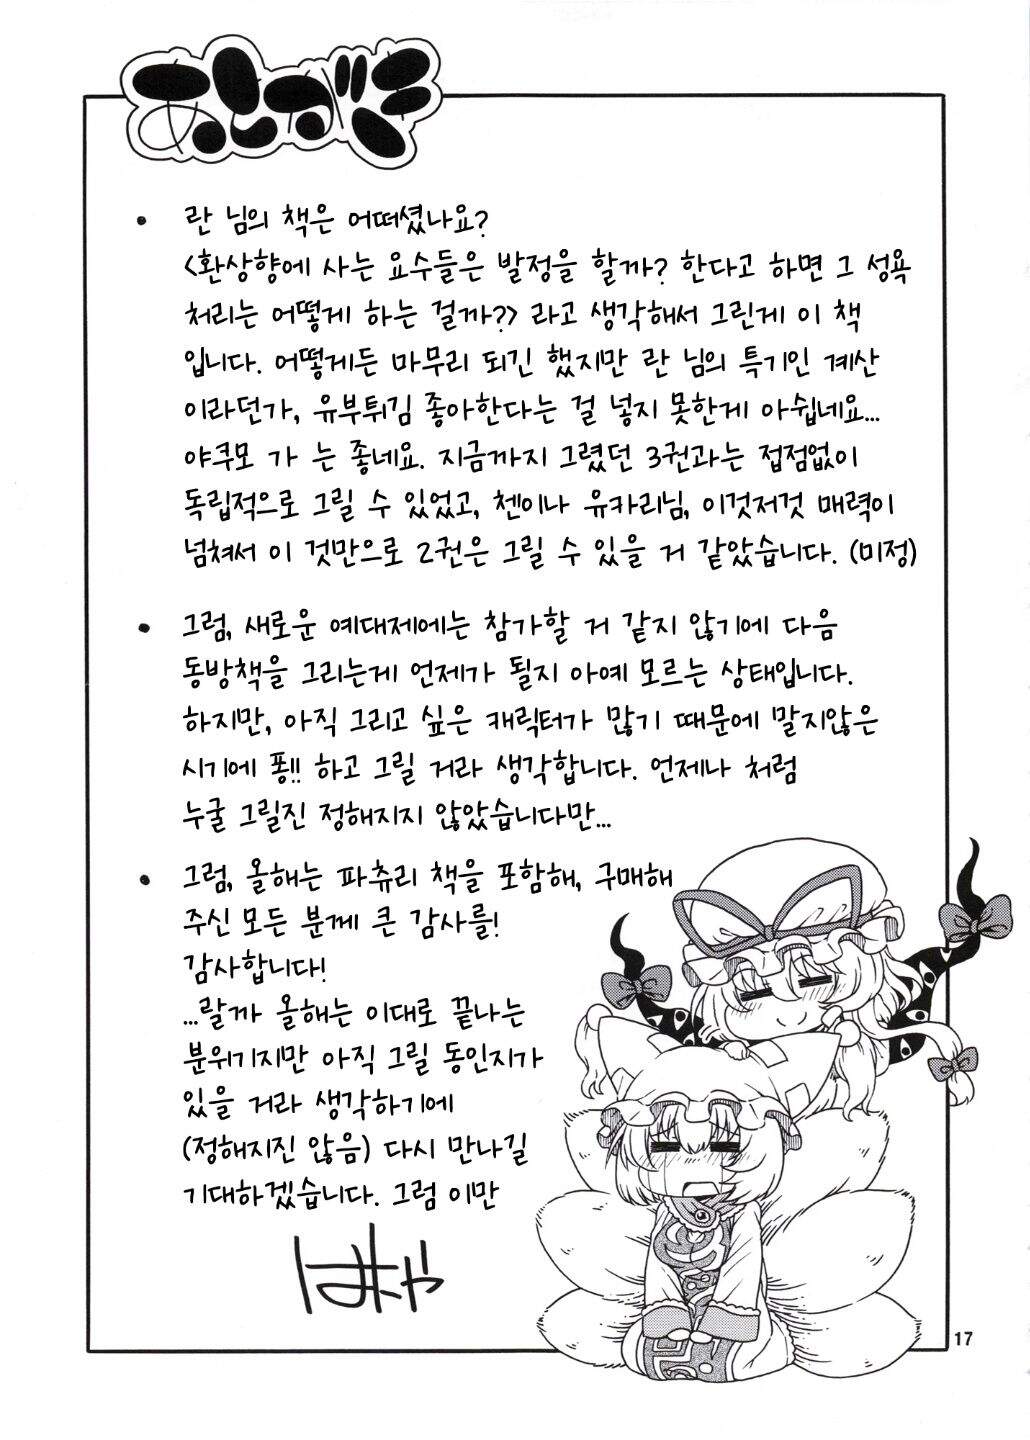 あとがき
• 란 님의 책은 어떠셨나요?
<환상향에 사는 요수들은 발정을 할까? 한다고 하면 그 성욕
처리는 어떻게 하는 걸까?> 라고 생각해서 그린게 이 책
입니다. 어떻게든 마무리 되긴 했지만 란 님의 특기인 계산
이라던가, 유부튀김 좋아한다는 걸 넣지 못한게 아쉽네요...
야쿠모 가 는 좋네요. 지금까지 그렸던 3권과는 접점없이
독립적으로 그릴 수 있었고, 첸이나 유카리님, 이것저것 매력이
넘쳐서 이 것만으로 2권은 그릴 수 있을 거 같았습니다. (미정)
• 그럼, 새로운 예대제에는 참가할 거 같지 않기에 다음
동방책을 그리는게 언제가 될지 아예 모르는 상태입니다.
하지만, 아직 그리고 싶은 캐릭터가 많기 때문에 말지않은
시기에 퐁!! 하고 그릴 거라 생각합니다. 언제나 처럼
누굴 그릴진 정해지지 않았습니다만...
• 그럼, 올해는 파츄리 책을 포함해, 구매해
주신 모든 분께 큰 감사를!
감사합니다!
...랄까 올해는 이대로 끝나는
분위기지만 아직 그릴 동인지가
있을 거라 생각하기에
(정해지진 않음) 다시 만나길
기대하겠습니다. 그럼 이만
はまや
17